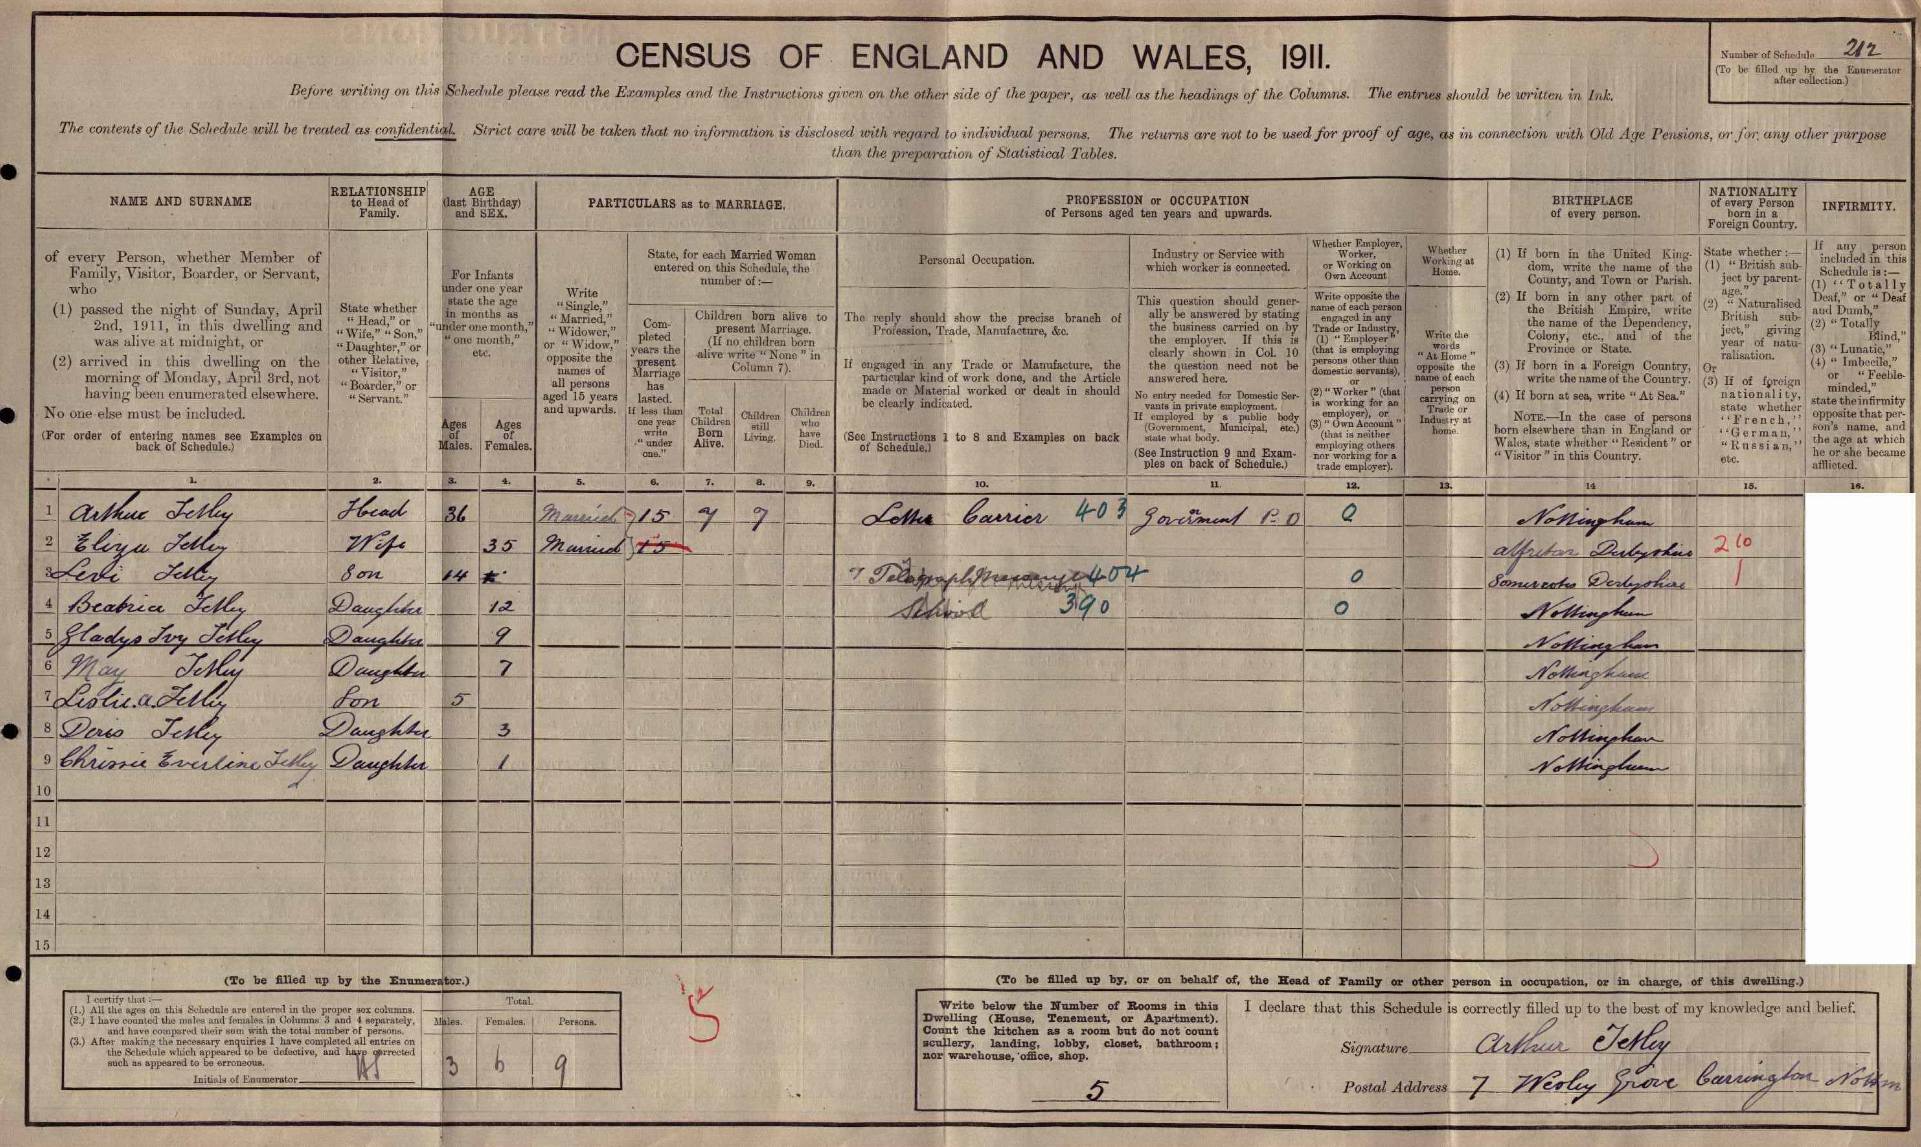 CENSUS OF ENGLAND AND WALES, 1911.
Number of Schedule 212
(To be filled up by the Enumerator after collection.)
Before writing on this Schedule please read the Examples and the Instructions given on the other side of the paper, as well as the headings of the Columns. The entries should be written in Ink.
The contents of the Schedule will be treated as confidential. Strict care will be taken that no information is disclosed with regard to individual persons. The returns are not to be used for proof of age, as in connection with Old Age Pensions, or for any other purpose
than the preparation of Statistical Tables.
NAME AND SURNAME
of every Person, whether Member of Family, Visitor, Boarder, or Servant, who
(1) passed the night of Sunday, April 2nd, 1911, in this dwelling and was alive at midnight, or
(2) arrived in this dwelling on the morning of Monday, April 3rd, not having been enumerated elsewhere.
No one else must be included.
(For order of entering names see Examples on back of Schedule.)
RELATIONSHIP to Head of Family.
State whether "Head," or "Wife," "Son," "Daughter," or other Relative, "Visitor," "Boarder," or "Servant."
AGE (last Birthday) and SEX.
For Infants under one year state the age in months as "under one month," "one month," etc.
Ages of Males.
Ages of Females.
PARTICULARS as to MARRIAGE.
Write "Single," "Married," "Widower," or "Widow," opposite the names of all persons aged 15 years and upwards.
State, for each Married Woman entered on this Schedule, the number of:—
Completed years the present Marriage has lasted. If less than one year write "under one."
Children born alive to present Marriage. (If no children born alive write "None" in Column 7).
Total Children Born Alive.
Children still Living.
Children who have Died.
PROFESSION or OCCUPATION
of Persons aged ten years and upwards.
Personal Occupation.
The reply should show the precise branch of Profession, Trade, Manufacture, &c.
If engaged in any Trade or Manufacture, the particular kind of work done, and the Article made or Material worked or dealt in should be clearly indicated.
(See Instructions 1 to 8 and Examples on back of Schedule.)
Industry or Service with which worker is connected.
This question should generally be answered by stating the business carried on by the employer. If this is clearly shown in Col. 10 the question need not be answered here.
No entry needed for Domestic Servants in private employment. If employed by a public body (Government, Municipal, etc.) state what body.
(See Instruction 9 and Examples on back of Schedule.)
Whether Employer, Worker, or Working on Own Account
Write opposite the name of each person engaged in any Trade or Industry, (1) "Employer" (that is employing persons other than domestic servants), or (2) "Worker" (that is working for an employer), or (3) "Own Account" (that is neither employing others nor working for a trade employer).
Whether Working at Home.
Write the words "At Home" opposite the name of each person carrying on Trade or Industry at home.
BIRTHPLACE of every person.
(1) If born in the United Kingdom, write the name of the County, and Town or Parish.
(2) If born in any other part of the British Empire, write the name of the Dependency, Colony, etc., and of the Province or State.
(3) If born in a Foreign Country, write the name of the Country.
(4) If born at sea, write "At Sea."
NOTE.—In the case of persons born elsewhere than in England or Wales, state whether "Resident" or "Visitor" in this Country.
NATIONALITY of every Person born in a Foreign Country.
State whether:—
(1) "British subject by parentage."
(2) "Naturalised British subject," giving year of naturalisation.
Or
(3) If of foreign nationality, state whether "French," "German," "Russian," etc.
INFIRMITY.
If any person included in this Schedule is:—
(1) "Totally Deaf," or "Deaf and Dumb,"
(2) "Totally Blind,"
(3) "Lunatic,"
(4) "Imbecile," or "Feeble-minded,"
state the infirmity opposite that person's name, and the age at which he or she became afflicted.
1. 2. 3. 4. 5. 6. 7. 8. 9. 10. 11. 12. 13. 14 15. 16.
1 Arthur Tetley Head 36 Married 15 7 7 Letter Carrier 403 Government P.O 0 Nottingham
2 Eliza Tetley Wife 35 Married 15 Alfreton Derbyshire 210
3 Levi Tetley Son 14 Telegraph Messenger 404 0 Somercotes Derbyshire 1
4 Beatrice Tetley Daughter 12 School 390 0 Nottingham
5 Gladys Ivy Tetley Daughter 9 Nottingham
6 May Tetley Daughter 7 Nottingham
7 Leslie.A.Tetley Son 5 Nottingham
8 Doris Tetley Daughter 3 Nottingham
9 Chrissie Everline Tetley Daughter 1 Nottingham
10
11
12
13
14
15
(To be filled up by the Enumerator.)
I certify that:—
(1.) All the ages on this Schedule are entered in the proper sex columns.
(2.) I have counted the males and females in Columns 3 and 4 separately, and have compared their sum with the total number of persons.
(3.) After making the necessary enquiries I have completed all entries on the Schedule which appeared to be defective, and have corrected such as appeared to be erroneous.
Initials of Enumerator
Total.
Males. Females. Persons.
3 6 9
5
(To be filled up by, or on behalf of, the Head of Family or other person in occupation, or in charge, of this dwelling.)
Write below the Number of Rooms in this Dwelling (House, Tenement, or Apartment). Count the kitchen as a room but do not count scullery, landing, lobby, closet, bathroom; nor warehouse, office, shop.
5
I declare that this Schedule is correctly filled up to the best of my knowledge and belief.
Signature Arthur Tetley
Postal Address 7 Wesley Grove Carrington Nottm